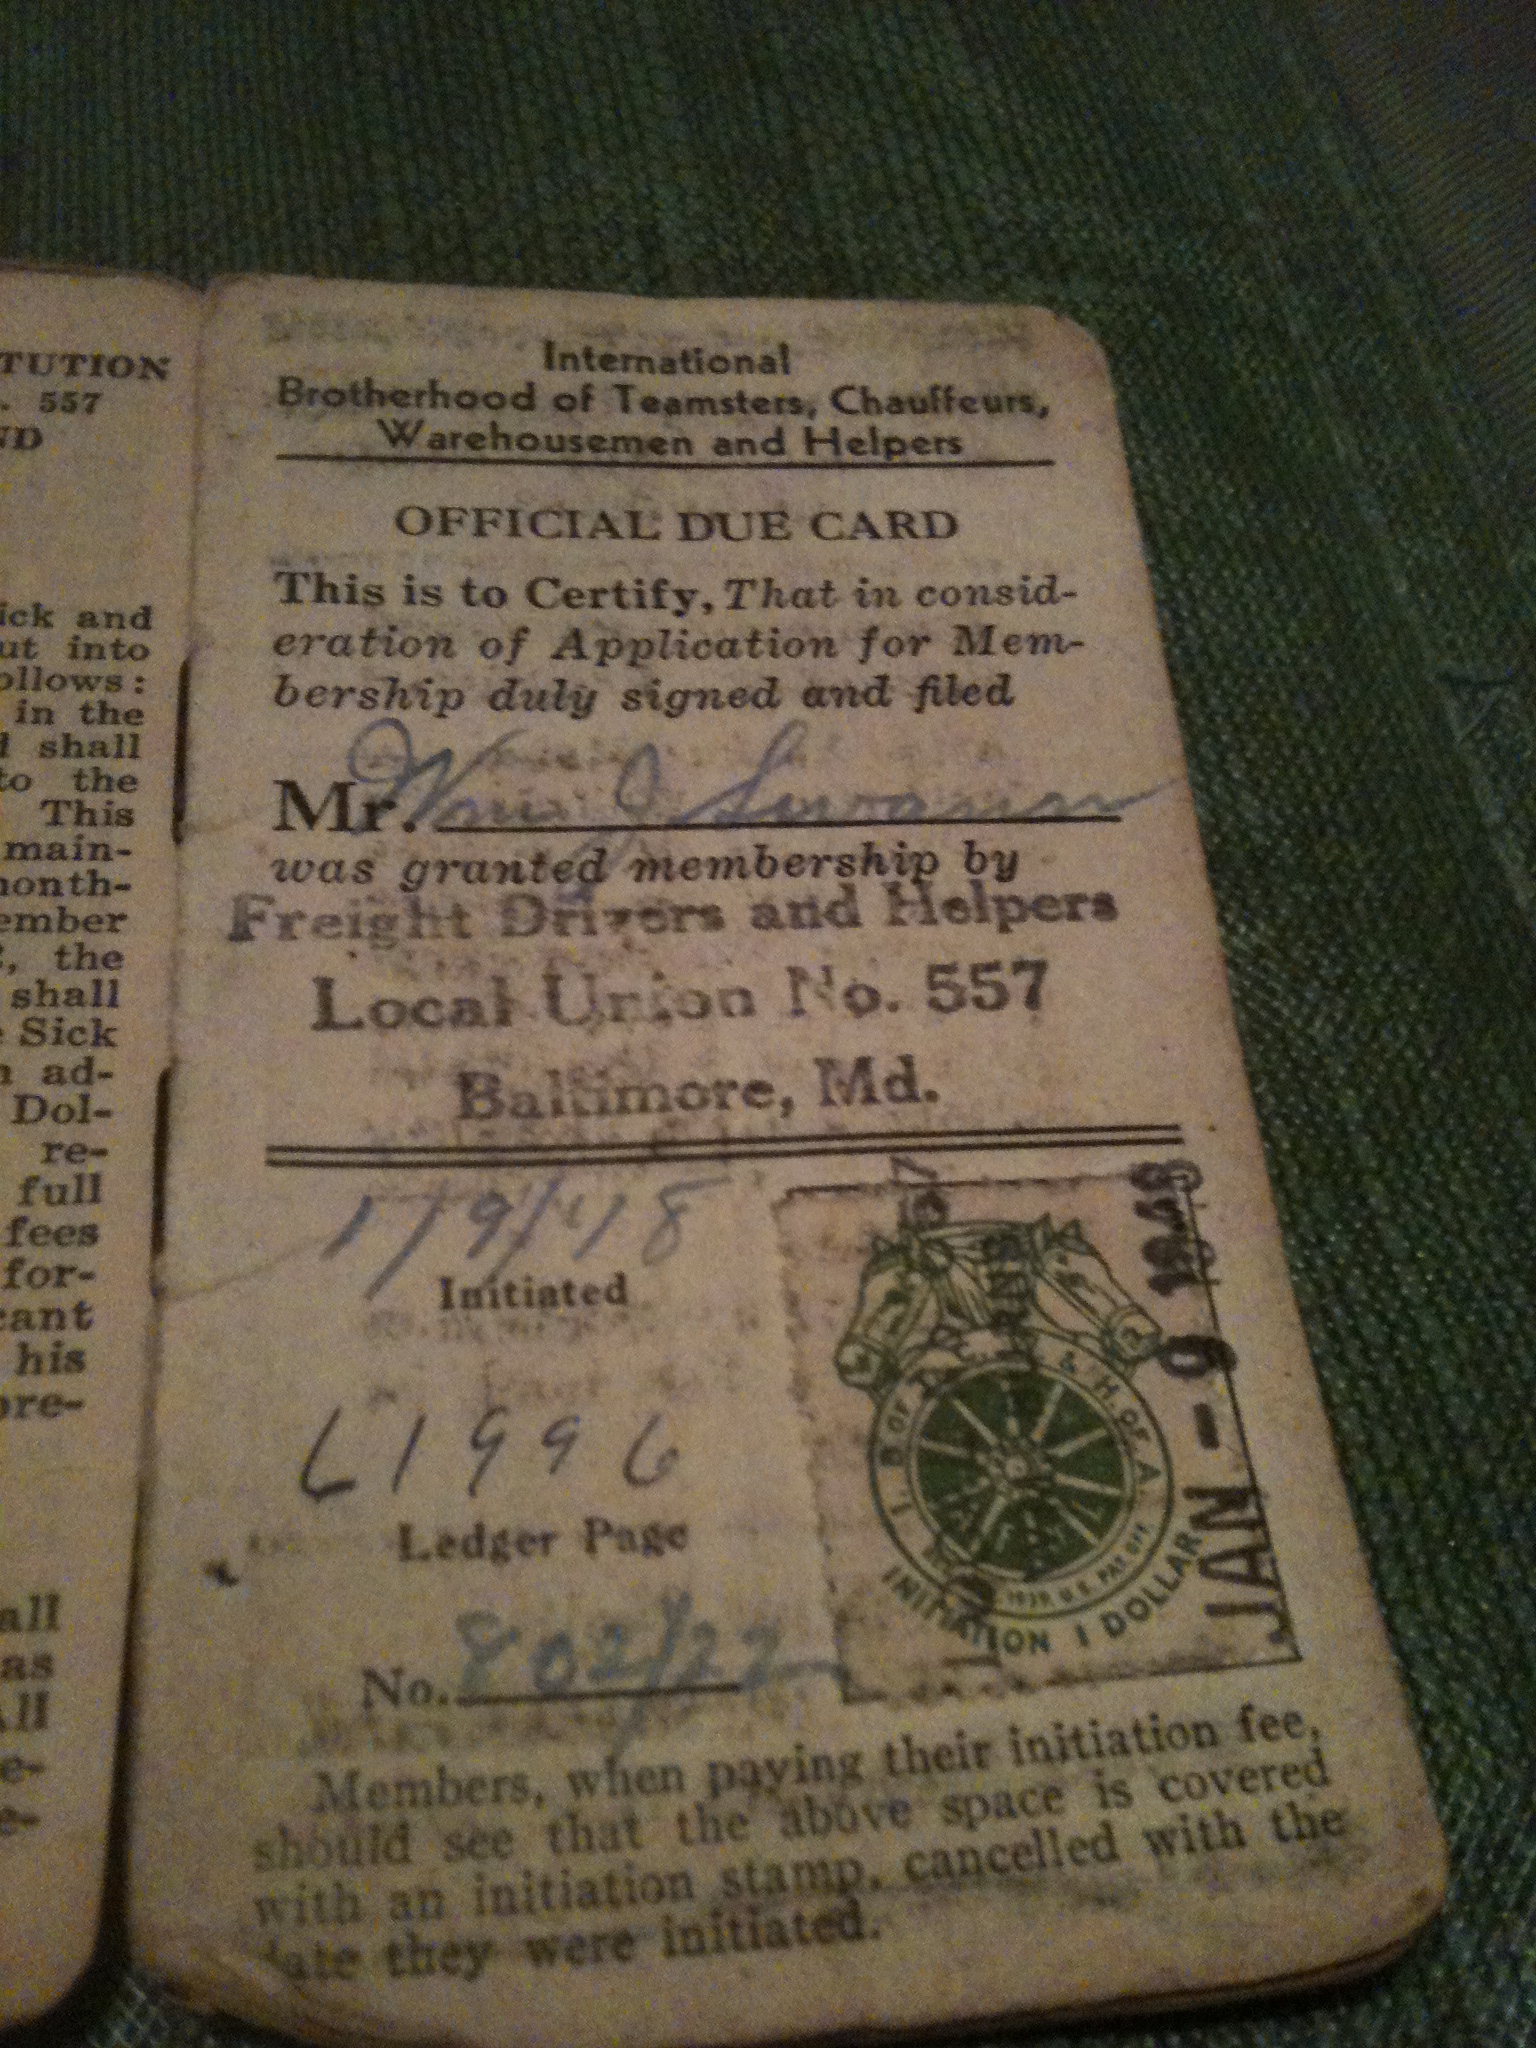 TUTION
. 557
ND
ick and
ut into
ollows:
in the
d shall
to the
This
main-
month-
ember
, the
shall
Sick
ad-
Dol-
re-
full
fees
for-
cant
his
pre-
all
as
All
e-
e-
International
Brotherhood of Teamsters, Chauffeurs,
Warehousemen and Helpers
OFFICIAL DUE CARD
This is to Certify, That in consid-
eration of Application for Mem-
bership duly signed and filed
Mr. Wm J Swann
was granted membership by
Freight Drivers and Helpers
Local Union No. 557
Baltimore, Md.
1/9/48
Initiated
L1996
Ledger Page
No. 802/22
557
I. B. OF T. C. & H. OF A.
INITIATION 1 DOLLAR
JAN - 9 1948
Members, when paying their initiation fee,
should see that the above space is covered
with an initiation stamp, cancelled with the
date they were initiated.